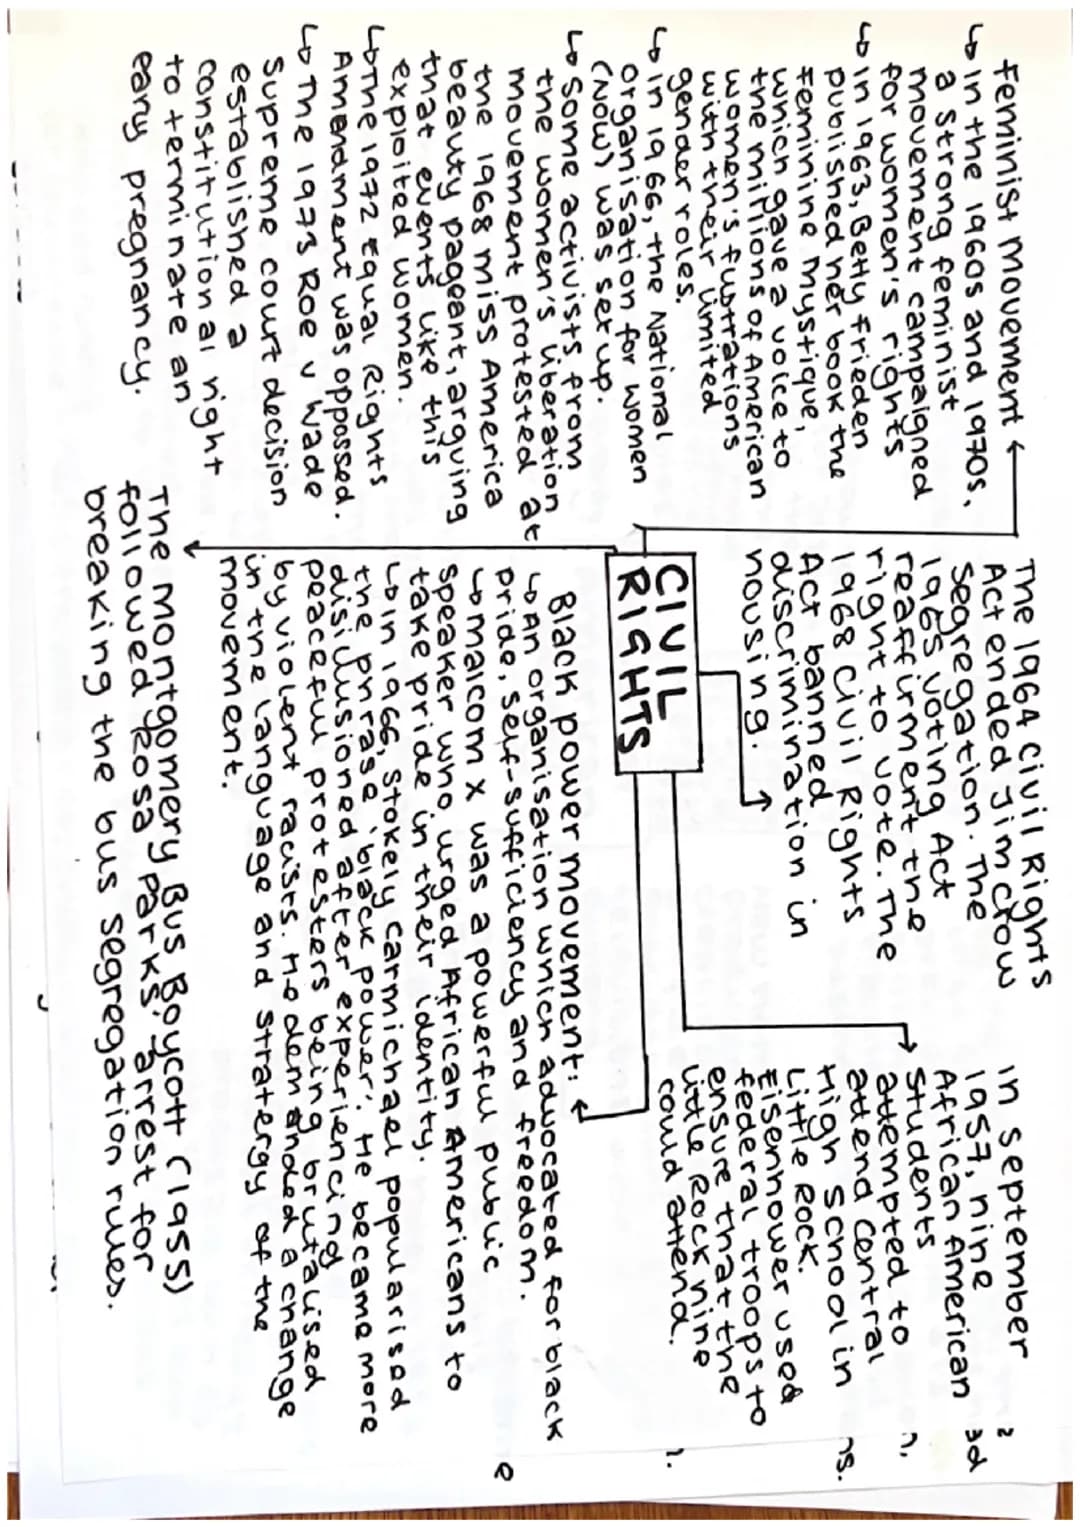 Feminist movement
↳ In the 1960s and 1970s,
a strong feminist
movement campaigned
for women's rights
↳ In 1963, Betty Frieden
published her book the
Feminine Mystique,
which gave a voice to
the millions of American
women's fustrations
with their limited
gender roles.
↳ In 1966, the National
organisation for women
(NOW) was set up.
↳ Some activists from
the women's liberation
movement protested at
the 1968 miss America
beauty pageant, arguing
that events like this
exploited women.
↳ The 1972 Equal Rights
Amendment was oppossed.
↳ The 1973 Roe v wade
Supreme court decision
established a
constitutional right
to terminate an
early pregnancy.
The 1964 civil Rights
Act ended Jim crow
Segregation. The
1965 voting Act
reaffirment the
right to vote. The
1968 civil Rights
Act banned
discrimination in
housing.
In September
1957, nine
African American
students
attempted to
attend central
High school in
Little Rock.
Eisenhower used
federal troops to
ensure that the
little Rock nine
could attend.
CIVIL
RIGHTS
Black power movement:
↳ An organisation which advocated for black
pride, self-sufficiency and freedom.
↳ malcom x was a powerful public
speaker who urged African Americans to
take pride in their identity.
↳ In 1966, Stokely carmichael popularised
the phrase 'black power'. He became more
disillusioned after experiencing
peaceful protesters being brutalised
by violent racists. He demanded a change
in the language and stratergy of the
movement.
The montgomery Bus Boycott (1955)
followed Rossa parks' arrest for
breaking the bus segregation rules.